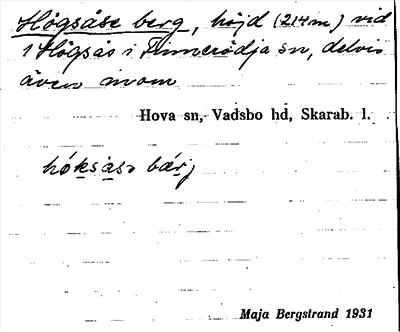 Högsåse berg, höjd (214 m) vid
1 Högsås i Finnerödja sn, delvis
även inom
Hova sn, Vadsbo hd, Skarab. l.
hóksåsə bárj
Maja Bergstrand 1931